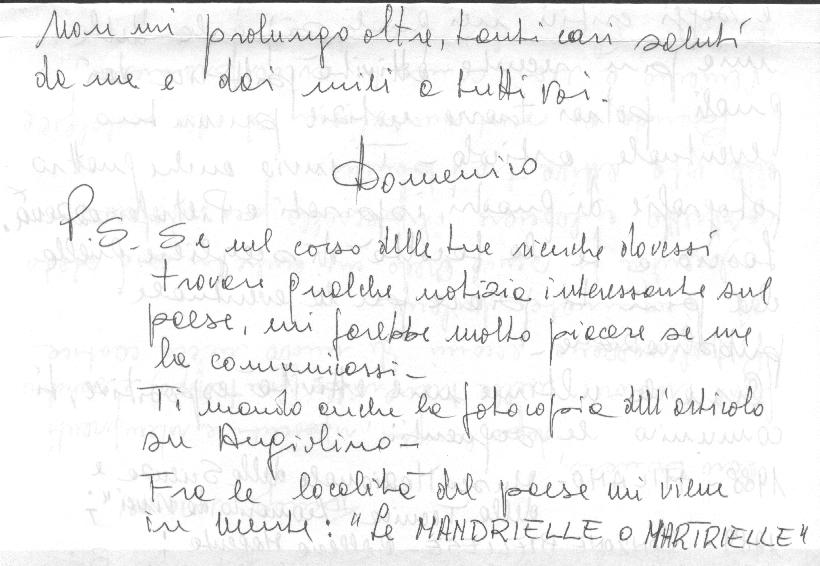 Non mi prolungo oltre, tanti cari saluti
da me e dai miei a tutti voi.
Domenico
P.S. Se nel corso delle tue ricerche dovessi
trovare qualche notizia interessante sul
paese, mi farebbe molto piacere se me
la comunicassi-
Ti mando anche la fotocopia dell'articolo
su Angiolino-
Fra le località del paese mi viene
in mente: "Le MANDRIELLE o MARTRIELLE"